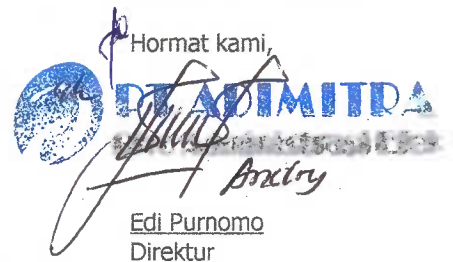 Hormat kami,
PT ADIMITRA
Andry
Edi Purnomo
Direktur